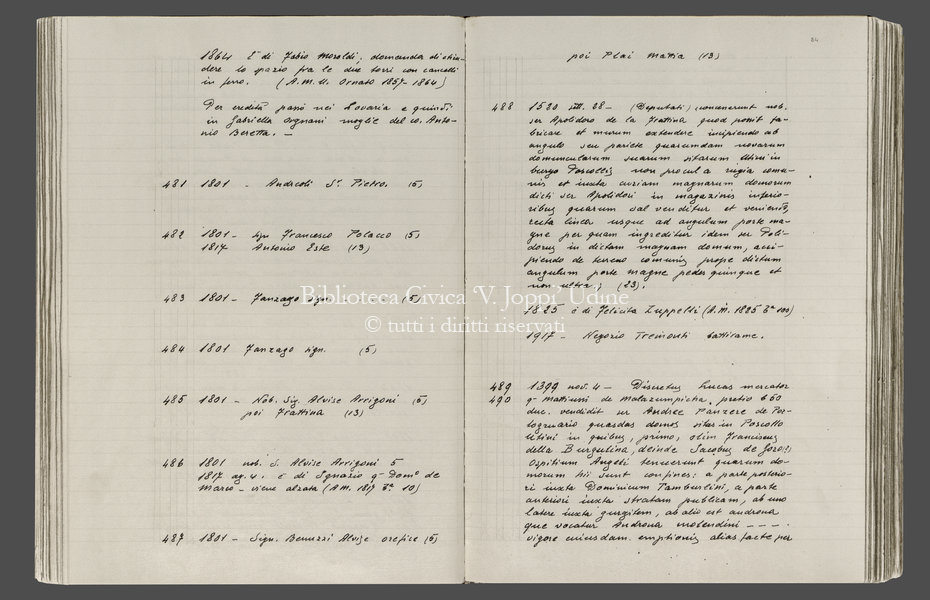 1864 È di Fabio Moroldi; domanda di chiu-
dere lo spazio fra le due torri con cancelli
in ferro. (A.M.U. Ornato 1857-1864)
Per eredità passò nei Lovaria e quindi
in Gabriella Orgnani moglie del co. Anto-
nio Beretta. —
481 1801 - Andreoli Sr. Pietro. (5)
482 1801 - sigr Francesco Polacco (5)
1817 Antonio Este (13)
483 1801 - Fanzago (5)
484 1801 Fanzago sign. (5)
485 1801 - Nob. Sig. Alvise Arrigoni (5)
poi Frattina (13)
486 1801 nob. S. Alvise Arrigoni 5
1817 ag. 4. è di Ignazio q. Domo de
Marco - viene alzata (A.M. 1817 10)
487 1801 - Sign. Benuzzi Alvise orefice (5)
84
poi Plai Mattia (13)
488 1520 sett. 28 - (Deputati) convenerunt nob.
ser Apolidoro de la Frattina quod possit fa-
bricare et murum extendere incipiendo ab
angulo seu pariete quarumdam novarum
domuncularum suarum sitarum Utini in
burgo Poscollis non procul a rugia comu-
nis et iuxta curiam magnarum domorum
dicti ser Apolidori in magazinis inferio-
ribus quarum sal venditur et veniendo,
recta linea usque ad angulum porte ma-
gne per quam ingreditur idem ser Poli-
dorus in dictam magnam domum, acci-
piendo de terreno comunis prope dictum
angulum porte magne pedes quinque et
non ultra; (23).
1825 è di Felicita Zuppelli (A.M. 1825 100)
1917 - Negozio Tremonti battirame.
489 1399 nov. 4 - Discretus Lucas mercator
490 q. Mattiussi de Malazumpicha, pretio 660
duc. vendidit ser Andree Panzere de Por-
togruario quasdas domos sitas in Poscollo
Utini in quibus, primo, olim Franciscus
della Burgulina, deinde Jacobus de
Ospitium Angeli tenuerunt quarum do-
morum hii sunt confines: a parte posterio-
ri iuxta Dominicum Tamburlini, a parte
anteriori iuxta stratam publicam, ab uno
latere iuxta gurgitem, ab alio est androna
que vocatur Androna molendini - - - .
vigore cuiusdam emptionis alias facte per
Biblioteca Civica 'V. Joppi' Udine
© tutti i diritti riservati